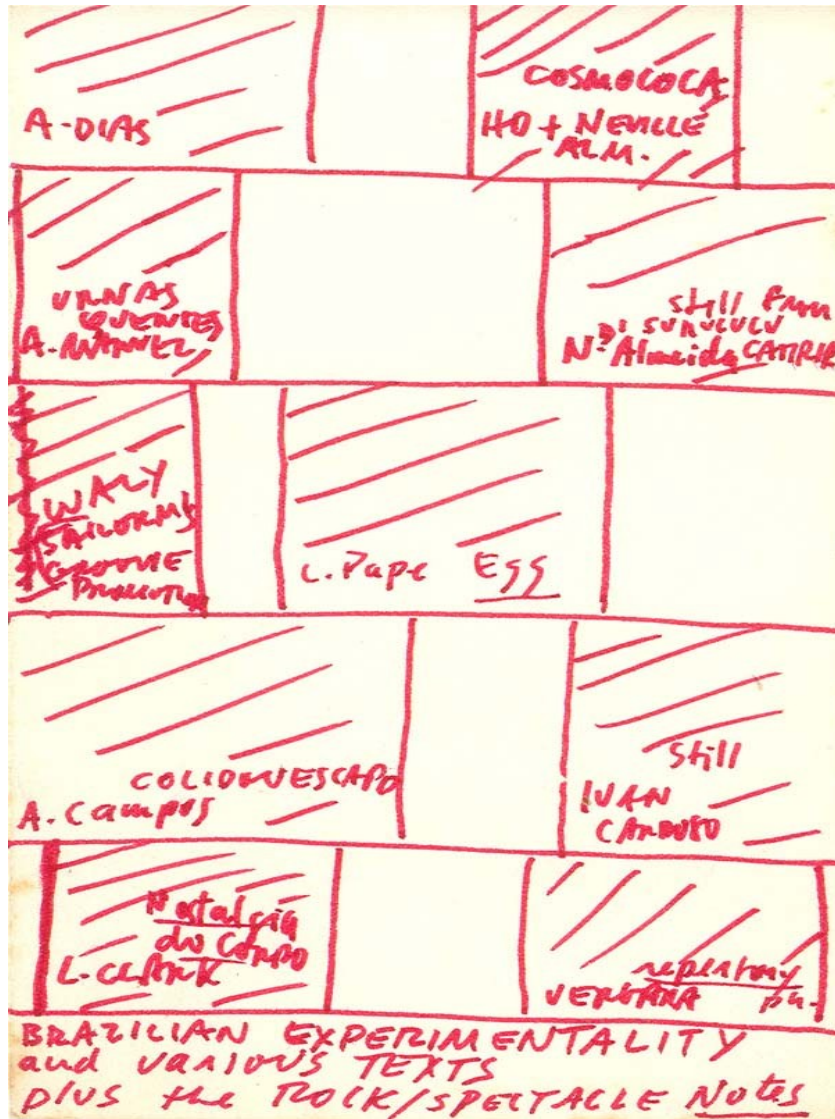 A-DIAS
COSMOCOCA
HO + NEVILLE
ALM.
URNAS
QUENTES
A. MANUEL
still from
SURUCUCU
Nº Almeida CATIRIPA
WALY
SAILORMS
GROOVIE
PROMOTION
L. Pape Egg
COLIDOUESCAPO
A. Campos
Still
IVAN
CARDOSO
Nostalgia
do CORPO
L. CLARK
repentory
VERGARA pu.
BRAZILIAN EXPERIMENTALITY
and VARIOUS TEXTS
plus the ROCK/SPECTACLE Notes